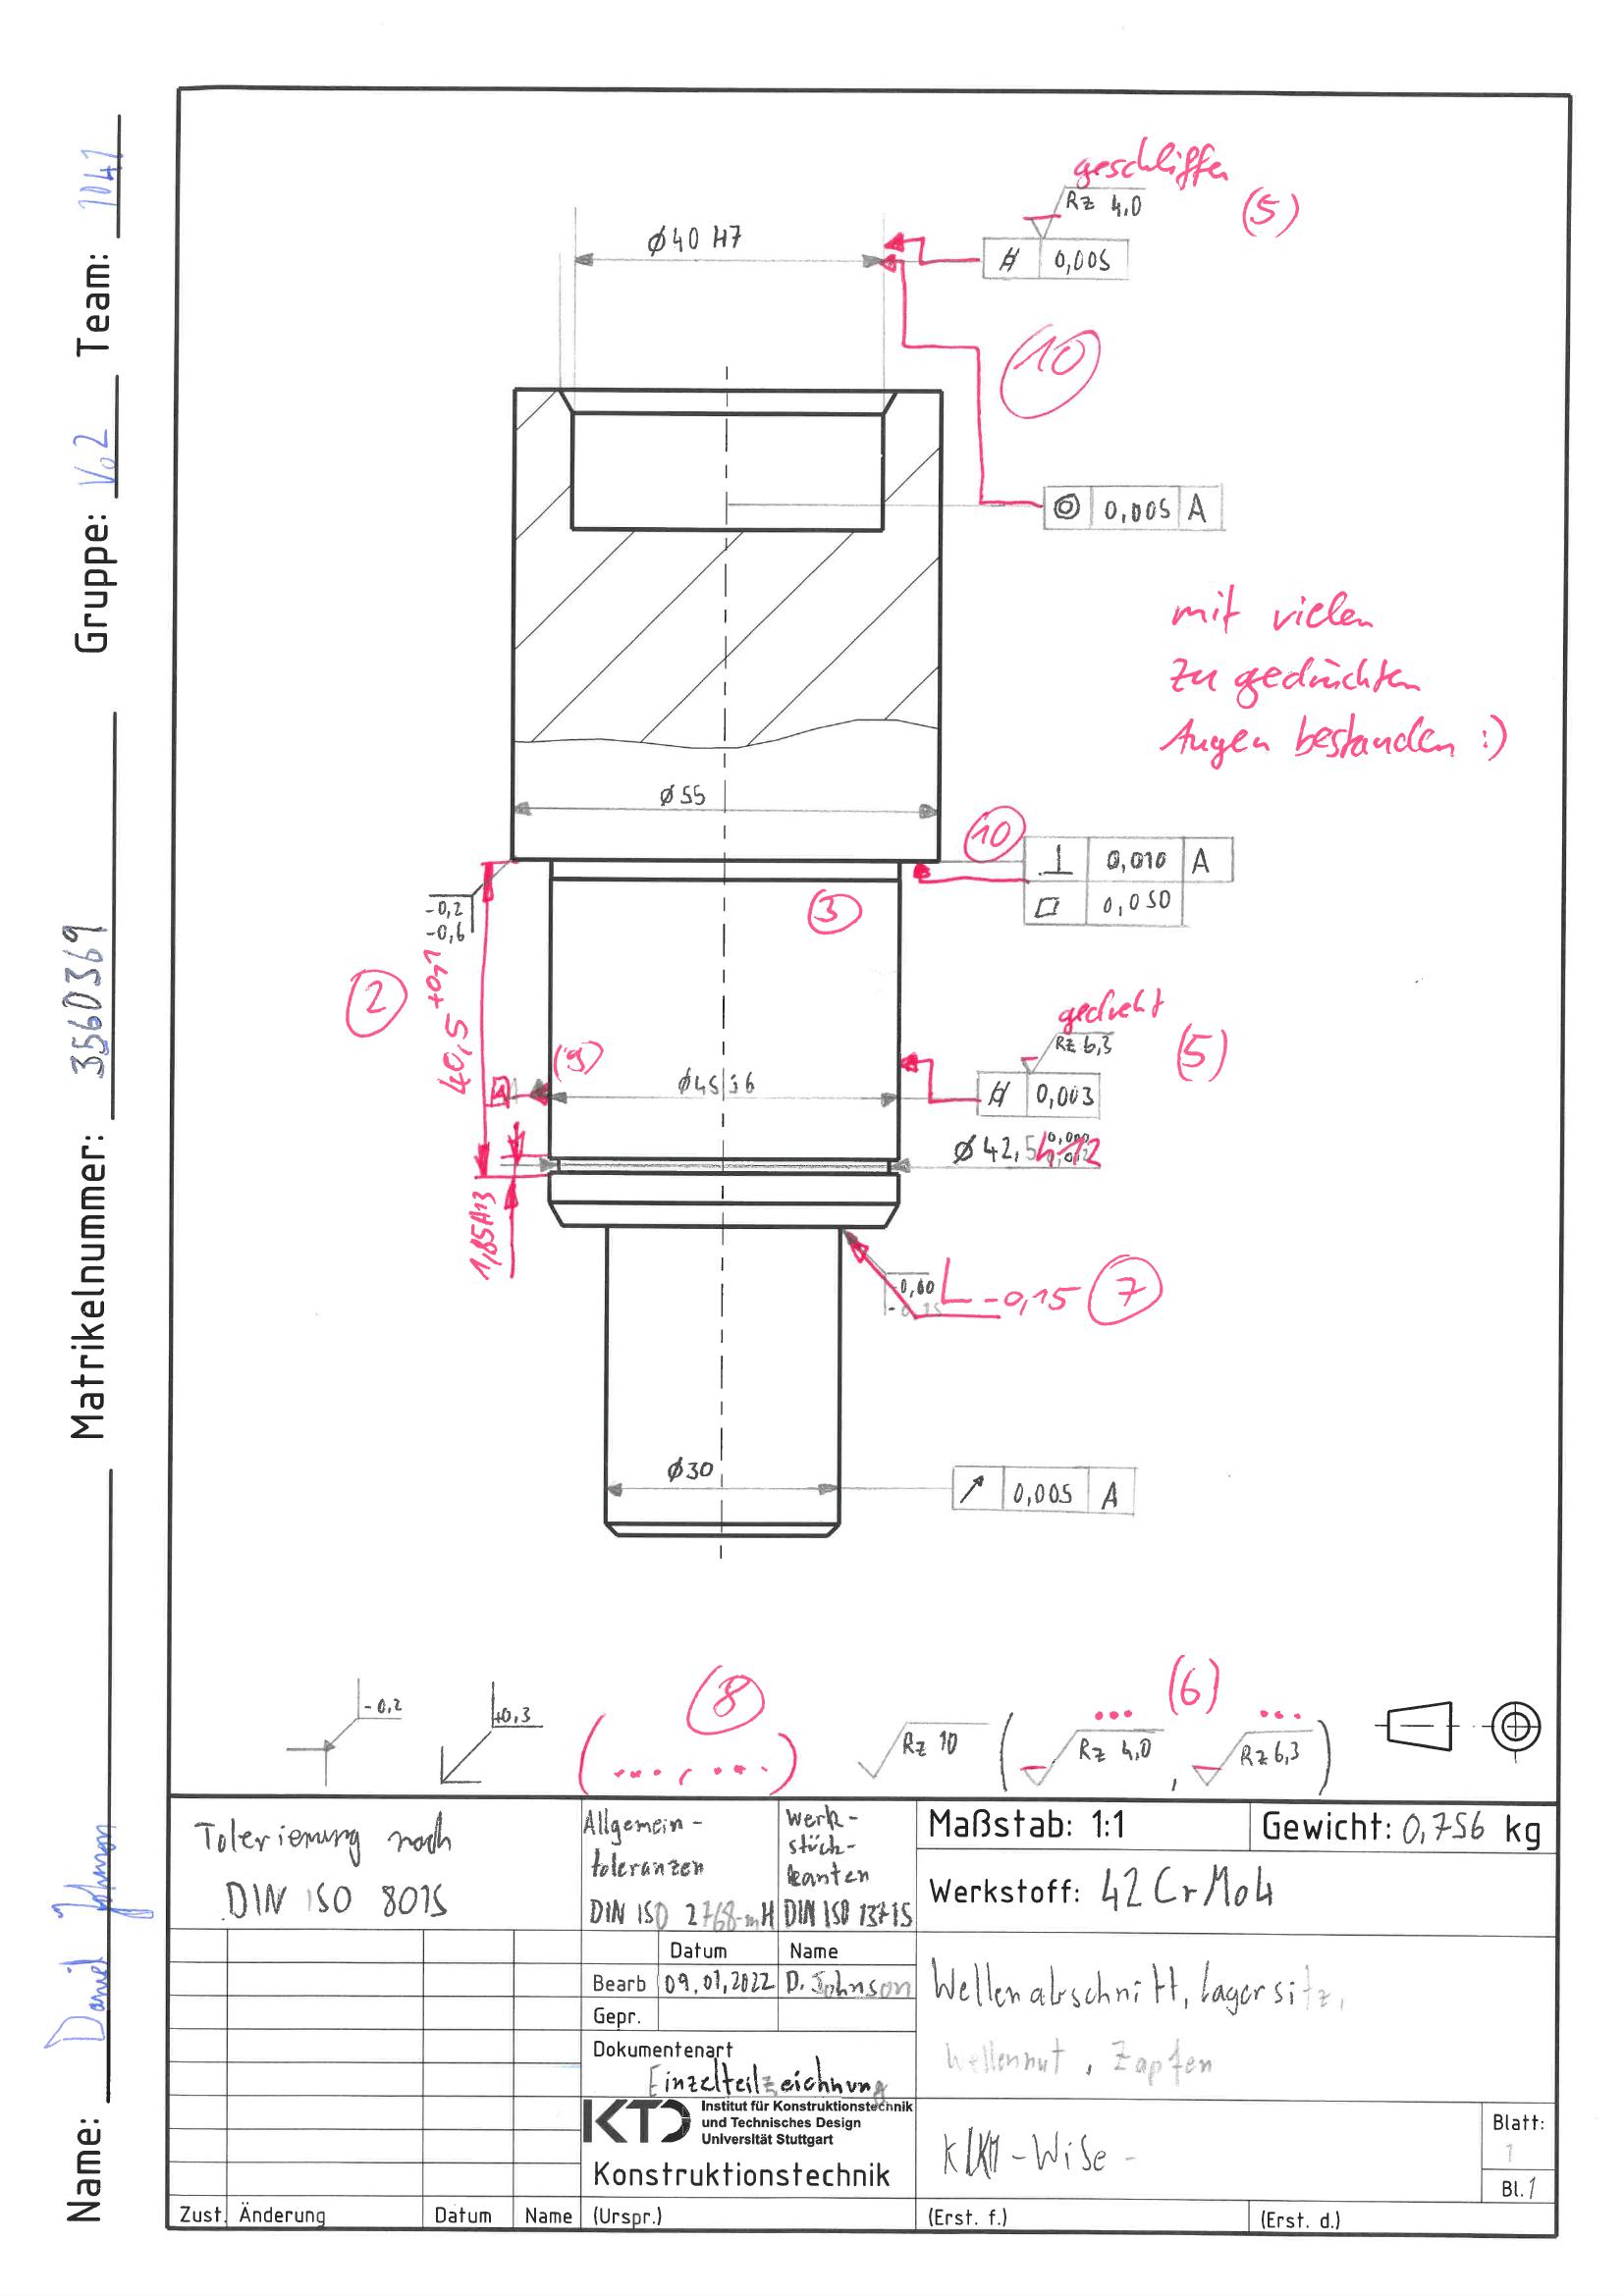 Name: Daniel Johnson
Matrikelnummer: 3560369
Gruppe: Vo2
Team: 1041
geschliffen
Rz 4,0
(5)
ϕ40 H7
0,005
10
0,005 A
mit vielen
zu gedrückten
Augen bestanden :)
ϕ55
10
0,010 A
0,050
-0,2
-0,6
3
2
40,5 +0,1
gedreht
Rz 6,3
(5)
(9)
A
ϕ45 j6
0,003
ϕ42,5 h12
1,85H13
-0,15
7
ϕ30
0,005 A
-0,2
+0,3
8
(...., ....)
Rz 10
(6)
... ...
( Rz 4,0 , Rz 6,3 )
Tolerierung nach
DIN ISO 8015
Allgemein-
toleranzen
DIN ISO 2768-mH
Werk-
stück-
kanten
DIN ISO 13715
Maßstab: 1:1
Gewicht: 0,756 kg
Werkstoff: 42CrMo4
Datum Name
Bearb 09.01.2022 D. Johnson
Gepr.
Wellenabschnitt, Lagersitz,
Wellennut, Zapfen
Dokumentenart
Einzelteilzeichnung
KTD
Institut für Konstruktionstechnik
und Technisches Design
Universität Stuttgart
Konstruktionstechnik
-WiSe-
Blatt:
1
Bl.1
Zust. Änderung Datum Name (Urspr.) (Erst. f.) (Erst. d.)